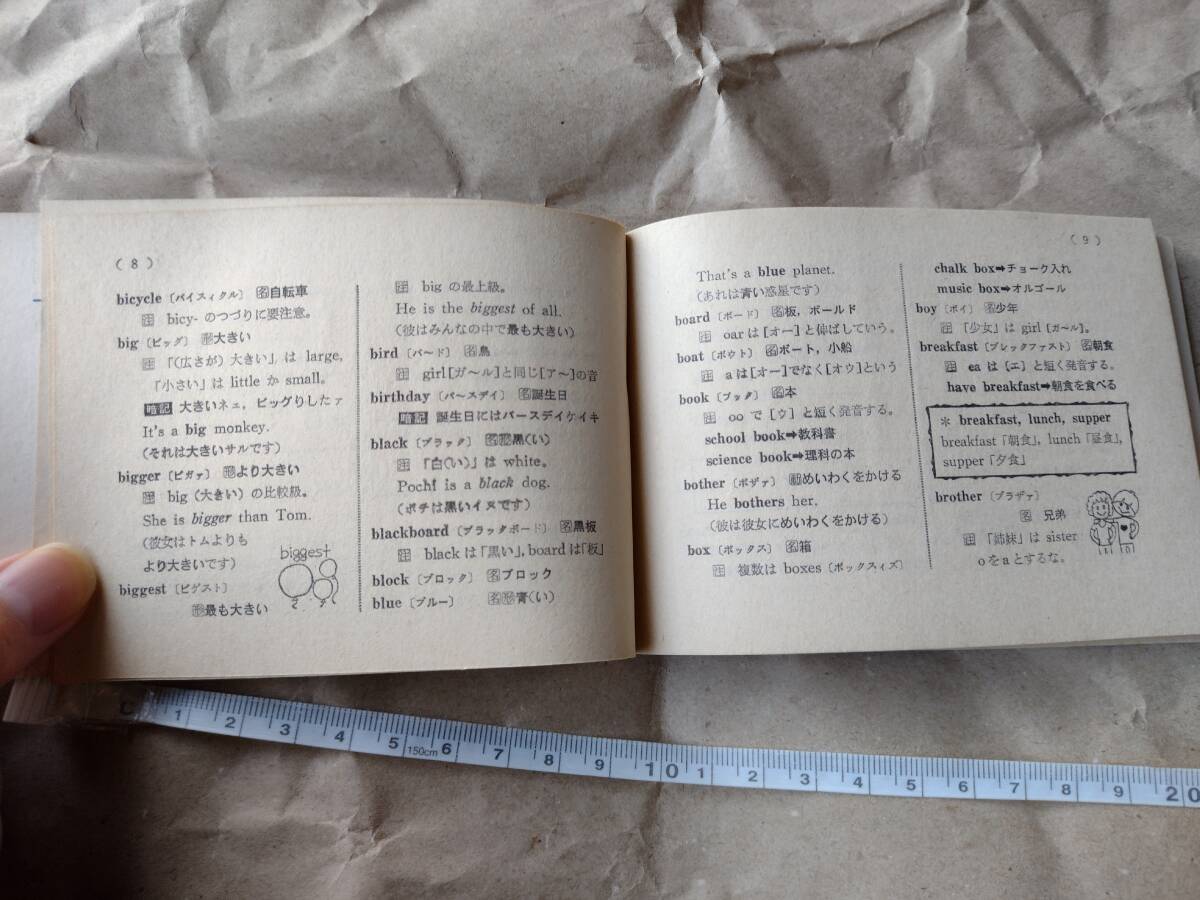 ( 8 )
bicycle 〔バイスィクル〕 名自転車
注 bicy- のつづりに要注意。
big 〔ビッグ〕 形大きい
注 「(広さが) 大きい」は large,
「小さい」は little か small。
暗記 大きいネェ, ビッグりしたァ
It's a big monkey.
(それは大きいサルです)
bigger 〔ビガァ〕 形より大きい
注 big (大きい) の比較級。
She is bigger than Tom.
(彼女はトムよりも
より大きいです)
biggest 〔ビゲスト〕
形最も大きい
biggest
注 big の最上級。
He is the biggest of all.
(彼はみんなの中で最も大きい)
bird 〔バ～ド〕 名鳥
注 girl[ガ～ル]と同じ[ア～]の音
birthday 〔バ～スデイ〕 名誕生日
暗記 誕生日にはバースデイケイキ
black 〔ブラック〕 名形黒(い)
注 「白(い)」は white。
Pochi is a black dog.
(ポチは黒いイヌです)
blackboard 〔ブラックボード〕 名黒板
注 black は「黒い」, board は「板」
block 〔ブロック〕 名ブロック
blue 〔ブルー〕 名形青(い)
( 9 )
That's a blue planet.
(あれは青い惑星です)
board 〔ボード〕 名板, ボールド
注 oar は [オー] と伸ばしていう。
boat 〔ボウト〕 名ボート, 小船
注 a は [オー] でなく [オウ] という
book 〔ブック〕 名本
注 oo で [ウ] と短く発音する。
school book➡教科書
science book➡理科の本
bother 〔ボザァ〕 動めいわくをかける
He bothers her.
(彼は彼女にめいわくをかける)
box 〔ボックス〕 名箱
注 複数は boxes 〔ボックスィズ〕
chalk box➡チョーク入れ
music box➡オルゴール
boy 〔ボイ〕 名少年
注 「少女」は girl [ガ～ル]。
breakfast 〔ブレックファスト〕 名朝食
注 ea は [エ] と短く発音する。
have breakfast➡朝食を食べる
＊ breakfast, lunch, supper
breakfast「朝食」, lunch「昼食」,
supper「夕食」
brother 〔ブラザァ〕
名 兄弟
注 「姉妹」は sister
o を a とするな。
1 2 3 4 5 150cm 6 7 8 9 10 1 2 3 4 5 6 7 8 9 20